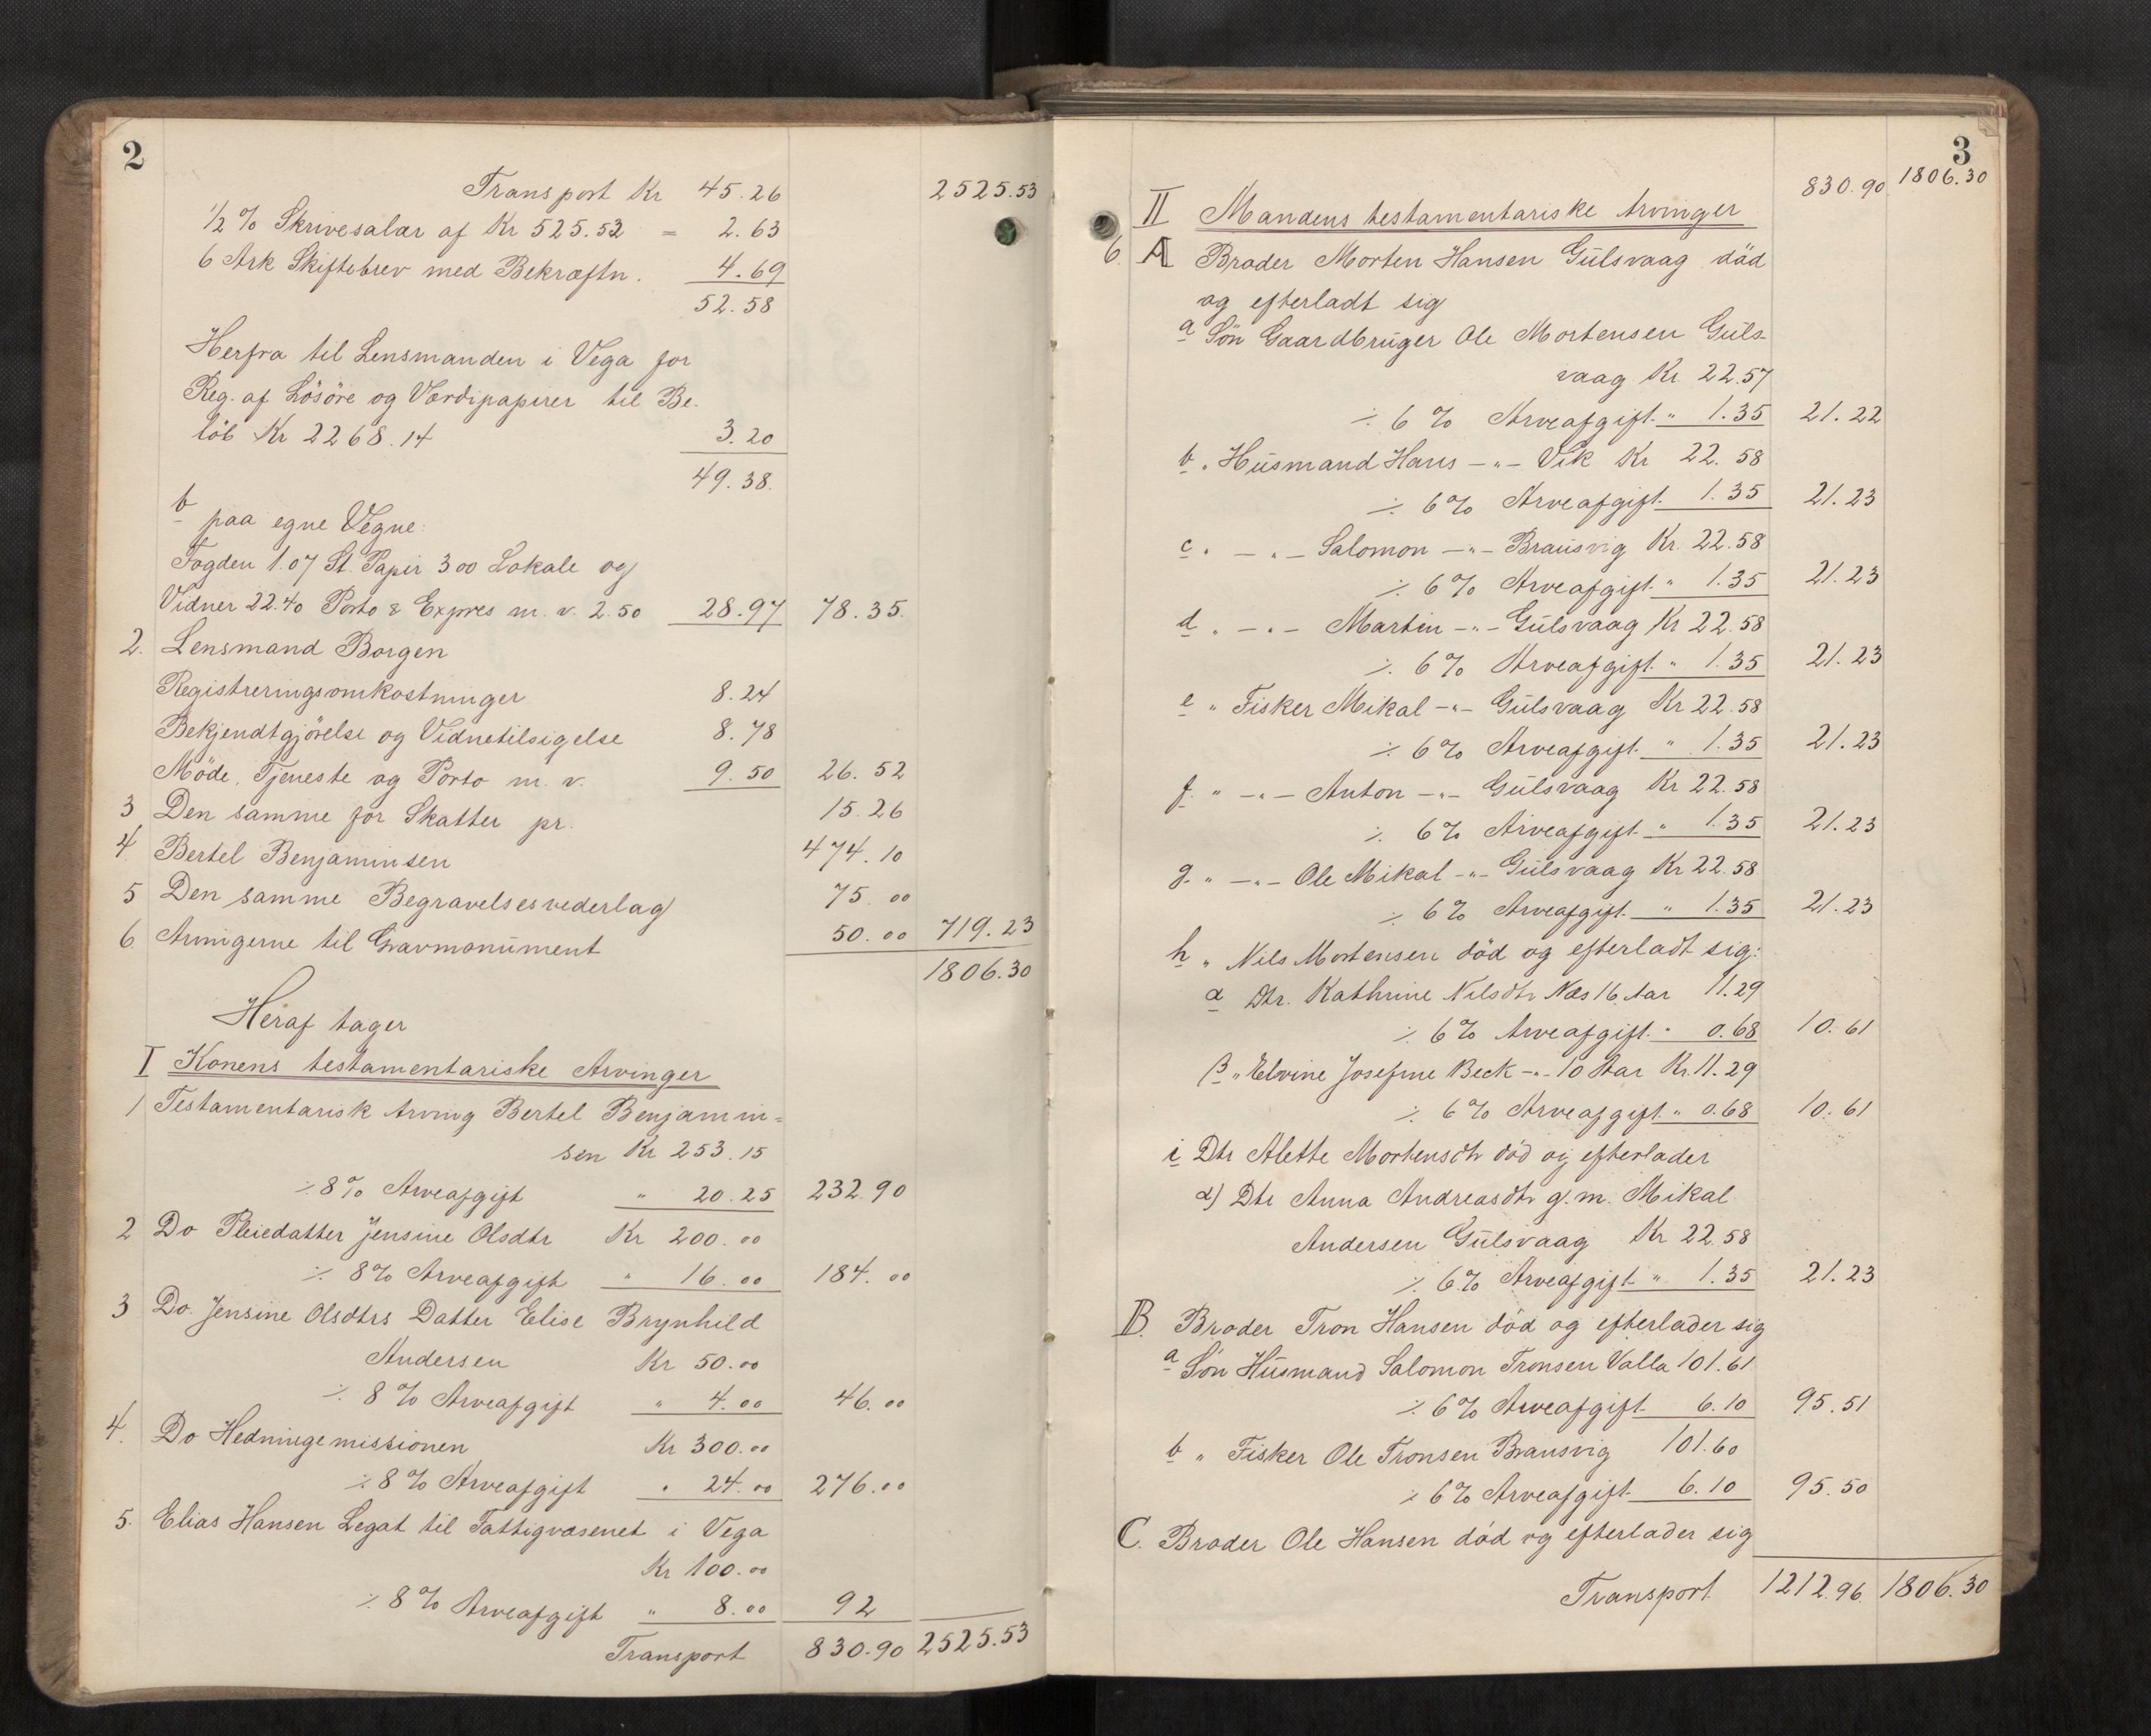 2
Transport Kr 45.26 2525.53
1/2 % Skrivesalær af Kr 525.53 = 2.63
6 Ark Skiftebrev med Bekræftn. 4.69
52.58
Herfra til Lensmanden i Vega for
Reg. af Lösöre og Værdipapirer til Be-
löb Kr 2268.14 3.20
49.38.
b paa egne Vegne:
Fogden 1.07 St. Papir 3 00 Lokale og
Vidner 22.40 Porto & Expres m. v. 2.50 28.97 78.35.
2. Lensmand Borgen
Registreringsomkostninger 8.24
Bekjendtgjörelse og Vidnetilsigelse 8.78
Möde, Tjeneste og Porto m. v. 9.50 26.52
3 Den samme for Skatter pr. 15.26
4. Bertel Benjaminsen 474.10
5 Den samme Begravelsesvederlag 75.00
6 Arvingerne til Gravmonument 50.00 719.23
1806.30
Heraf tager
I Konens testamentariske Arvinger
1 Testamentarisk Arving Bertel Benjamin=
sen Kr 253.15
÷ 8% Arveafgift " 20.25 232.90
2 Do Pleiedatter Jensine Olsdtr Kr 200.00
÷ 8% Arveafgift " 16.00 184.00
3 Do. Jensine Olsdtrs Datter Elise Brynhild
Andersen Kr 50.00
÷ 8% Arveafgift " 4.00 46.00
4. Do Hedningemissionen Kr 300.00
÷ 8% Arveafgift " 24.00 276.00
5. Elias Hansen Legat til Fattigvæsenet i Vega
Kr 100.00
÷ 8% Arveafgift " 8.00 92
Transport 830.90 2525.53
3
830.90 1806.30
II Mandens testamentariske Arvinger
6. A Broder Morten Hansen Gulsvaag död
og efterladt sig
a Sön Gaardbruger Ole Mortensen Guls-
vaag Kr. 22.57
÷ 6% Arveafgift " 1.35 21.22
b " Husmand Hans -"- Vik Kr 22.58
÷ 6% Arveafgift 1.35 21.23
c " -"- Salomon -"- Brausvig Kr. 22.58
÷ 6% Arveafgift " 1.35 21.23
d " -"- Martin -"- Gulsvaag Kr 22.58
÷ 6% Arveafgift " 1.35 21.23
e " Fisker Mikal -"- Gulsvaag Kr 22.58
÷ 6% Arveafgift " 1.35 21.23
f. " -"- Anton -"- Gulsvaag Kr 22.58
÷ 6% Arveafgift " 1.35 21.23
g. " -"- Ole Mikal -"- Gulsvaag Kr 22.58
÷ 6% Arveafgift " 1.35 21.23
h " Nils Mortensen död og efterladt sig:
α Dtr. Kathrine Nilsdtr Næs 16 Aar 11.29
÷ 6% Arveafgift " 0.68 10.61
β " Elvine Josefine Beck -"- 10 Aar Kr. 11.29
÷ 6% Arveafgift " 0.68 10.61
i Dtr Alette Mortensdtr död og efterlader
α) Dtr Anna Andreasdtr g. m. Mikal
Andersen Gulsvaag Kr 22.58
÷ 6% Arveafgift " 1.35 21.23
B. Broder Tron Hansen död og efterlader sig
a Sön Husmand Salomon Tronsen Valla 101.61
÷ 6% Arveafgift 6.10 95.51
b " Fisker Ole Tronsen Brausvig 101.60
÷ 6% Arveafgift 6.10 95.50
C. Broder Ole Hansen död og efterlader sig
Transport 1212.96 1806.30